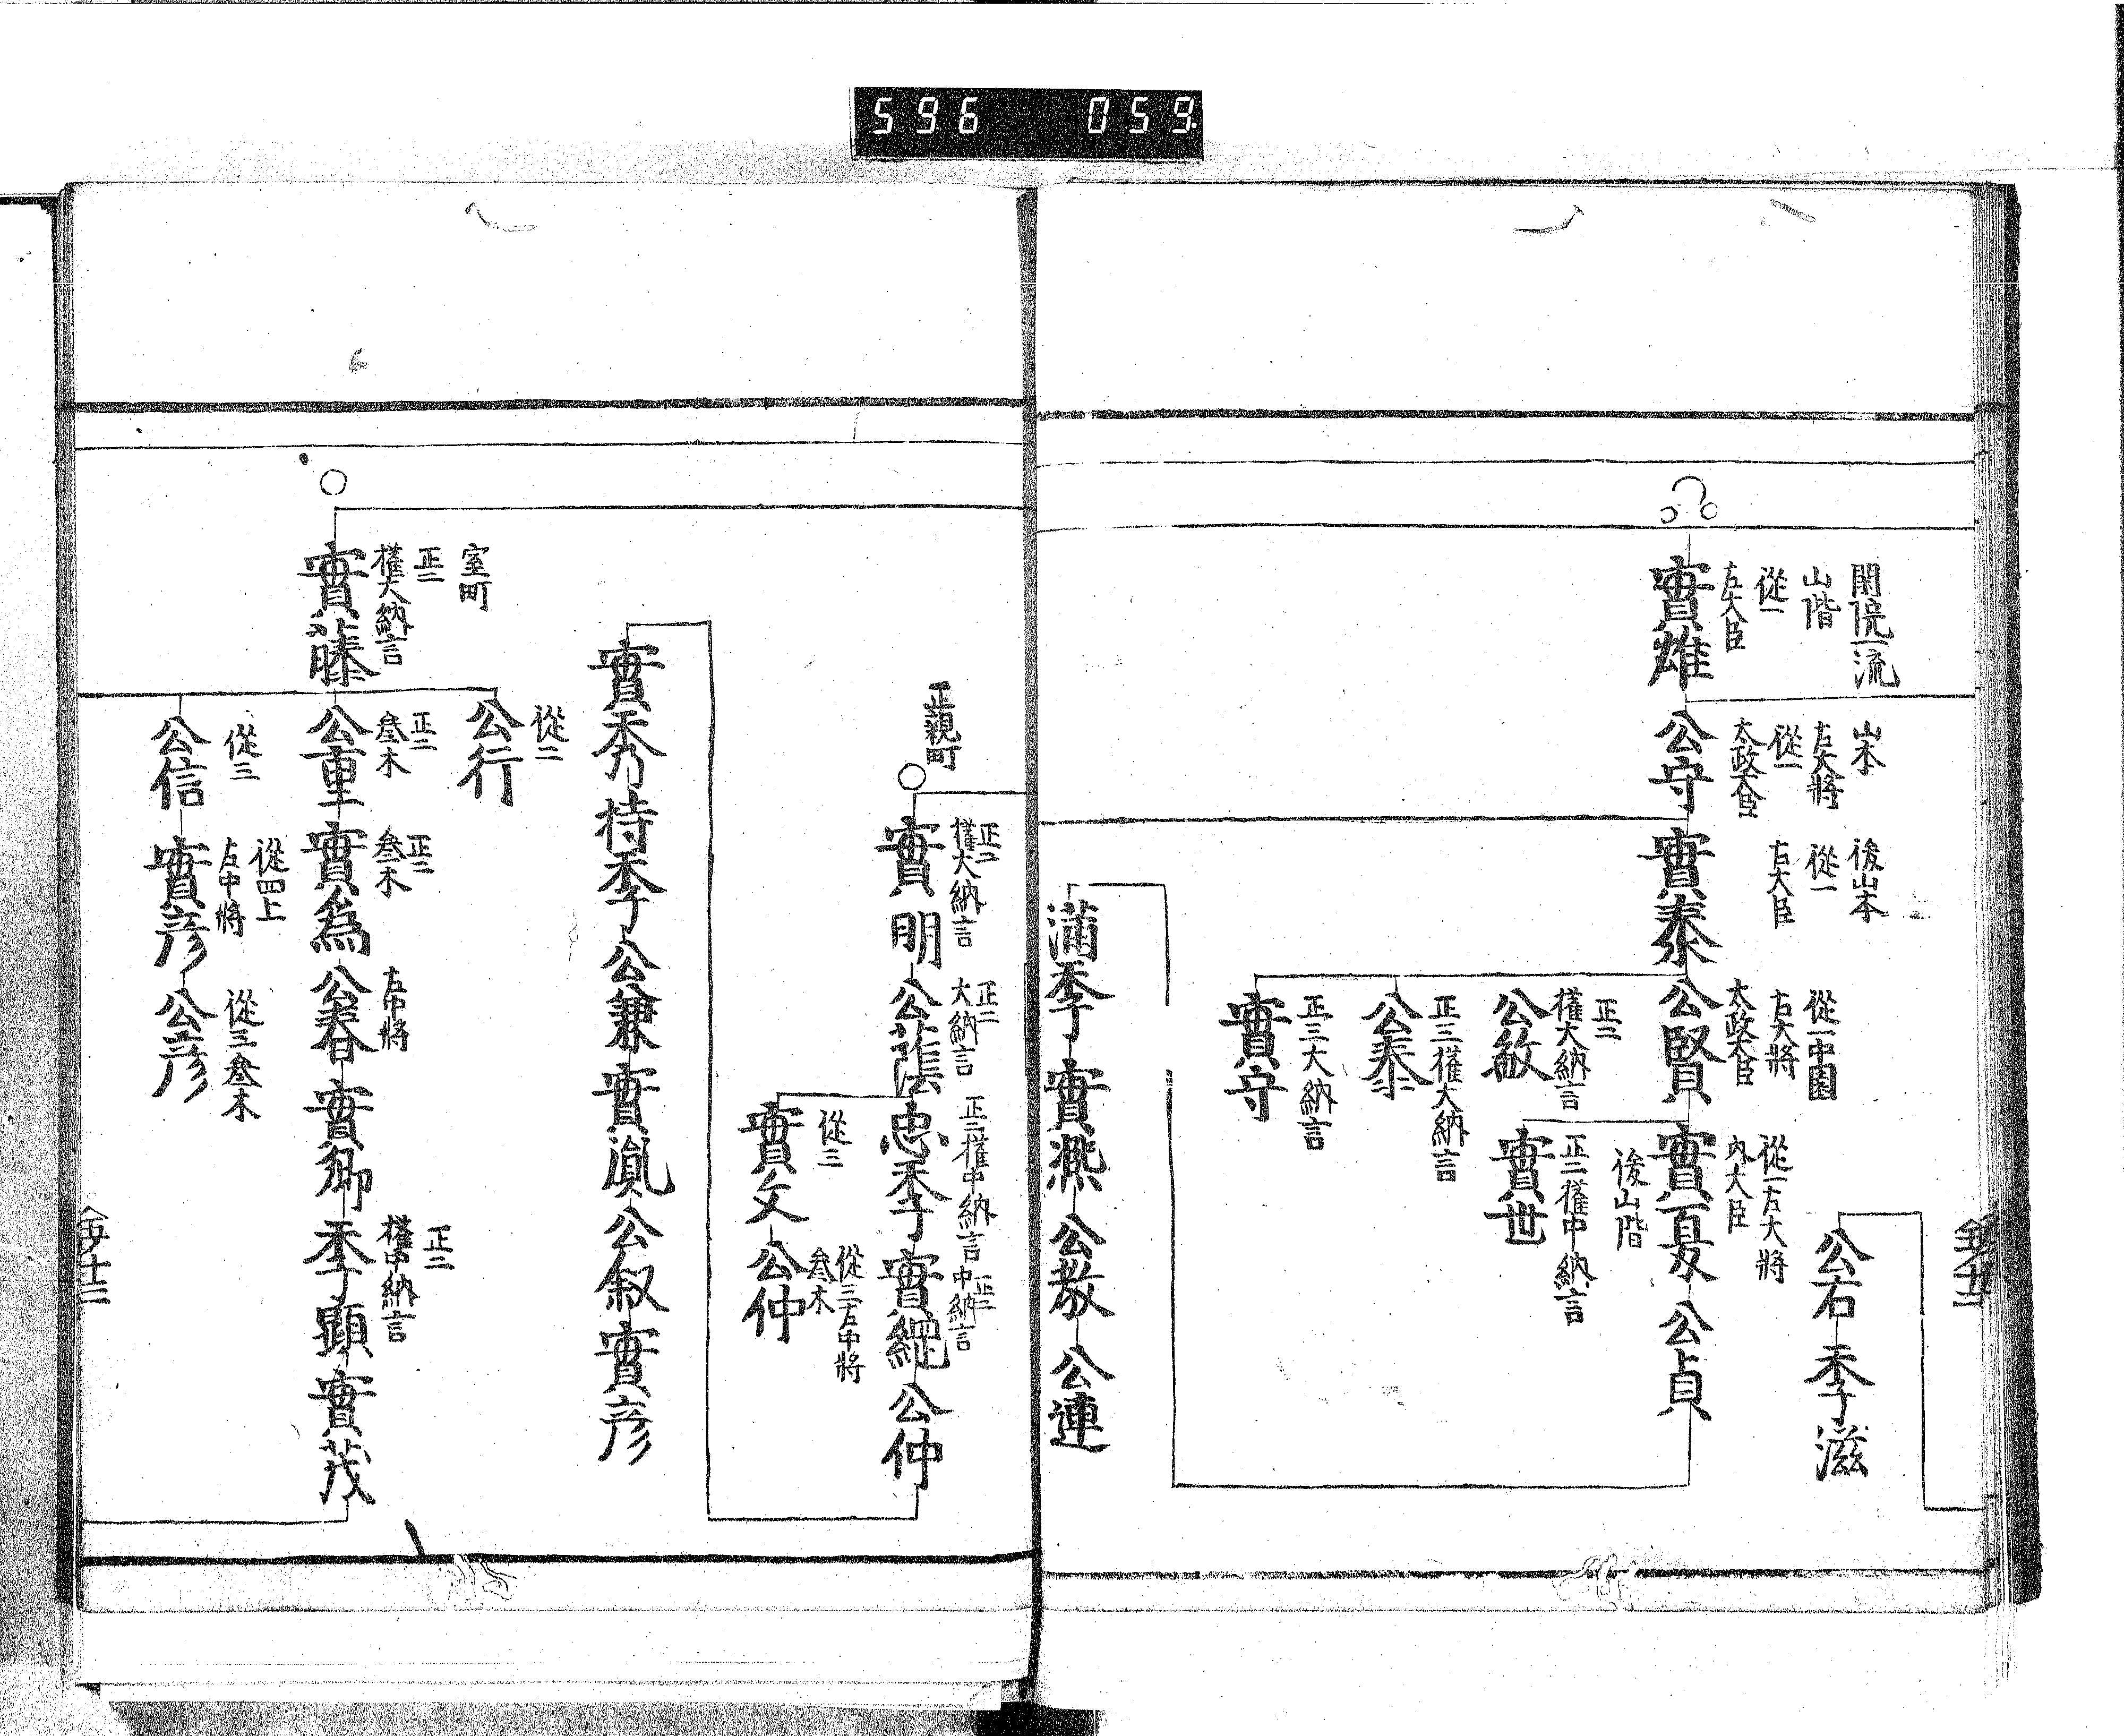 596 059.
公右 季滋
閑院一流
山階
從一
左大臣
實雄
山本
右大將
從一
太政大臣
公守
後山本
從一
右大臣
實泰
從一中園
右大將
太政大臣
公賢
從一右大將
內大臣
實夏
公貞
後山階
正二權中納言
實世
正二
權大納言
公敏
正三權大納言
公泰
正三大納言
實守
滿季 實熈 公敎 公連
正親町
正二
權大納言
實明
正二
大納言
公蔭
正二權中納言
忠季
正二
中納言
實綱
公仲
從三
實文
從三右中將
叄木
公仲
實秀 持季 公兼 實胤 公叙 實彦
室町
正二
權大納言
實藤
從二
公行
正二
叄木
公重
正二
叄木
實爲
左中將
公春
實卿
正二
權中納言
季顯
實茂
從三
公信
從四上
左中將
實彦
從三叄木
公彦